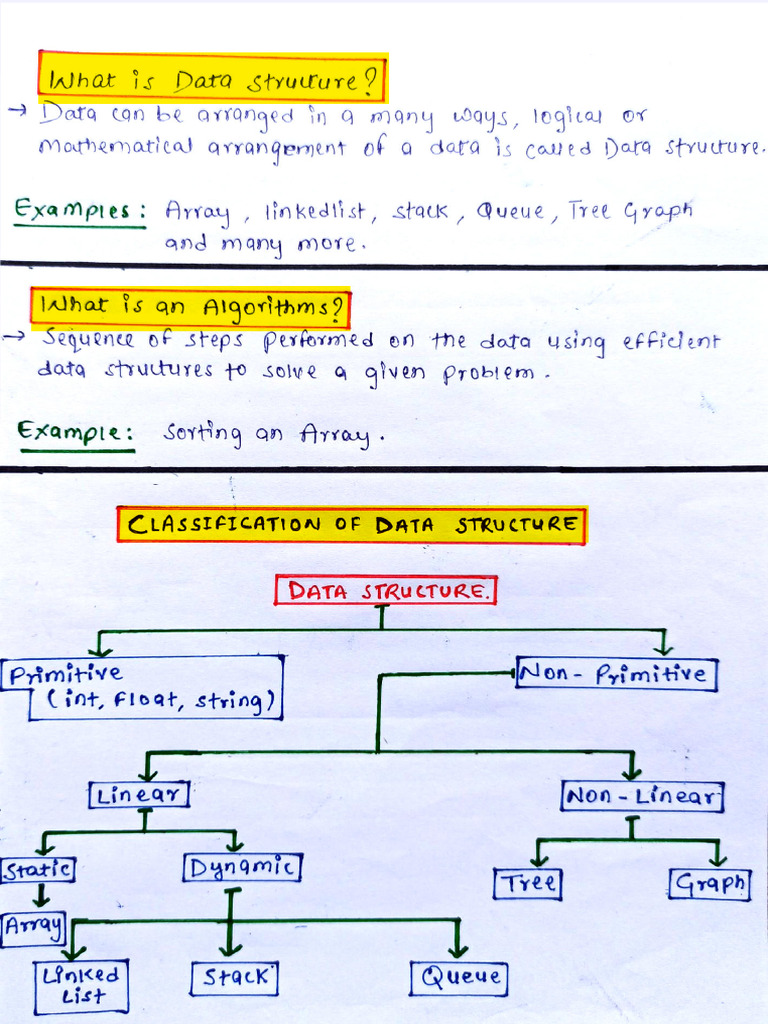 What is Data Structure?
→ Data can be arranged in a many ways, logical or
mathematical arrangement of a data is called Data structure.
Examples: Array, linkedlist, stack, Queue, Tree Graph
and many more.
What is an Algorithms?
→ Sequence of steps performed on the data using efficient
data structures to solve a given problem.
Example: Sorting an Array.
CLASSIFICATION OF DATA STRUCTURE
DATA STRUCTURE.
Primitive
(int, float, string)
Non-Primitive
Linear
Non-Linear
Static
Dynamic
Tree
Graph
Array
Linked
List
Stack
Queue